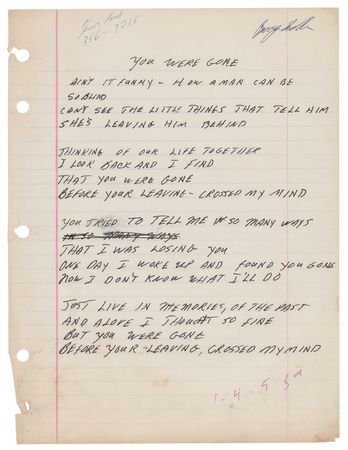 356-3216
YOU WERE GONE
AIN'T IT FUNNY - HOW A MAN CAN BE
SO BLIND
CAN'T SEE THE LITTLE THINGS THAT TELL HIM
SHE'S LEAVING HIM BEHIND
THINKING OF OUR LIFE TOGETHER
I LOOK BACK AND I FIND
THAT YOU WERE GONE
BEFORE YOUR LEAVING - CROSSED MY MIND
YOU TRIED TO TELL ME SO MANY WAYS
IN SO MANY WAYS
THAT I WAS LOSING YOU
ONE DAY I WOKE UP AND FOUND YOU GONE
NOW I DON'T KNOW WHAT I'LL DO
JUST LIVE IN MEMORIES, OF THE PAST
AND A LOVE I THOUGHT SO FINE
BUT YOU WERE GONE
BEFORE YOUR LEAVING, CROSSED MY MIND
1-4-5 3m